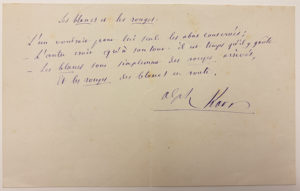 Les blancs et les rouges.
L'un voudrait pour lui seul les abus conservés;
L'autre crie qu'à son tour il est temps qu'il y goûte.
– Les blancs sont simplement des rouges arrivés,
Et les rouges des blancs en route.
Alph Karr